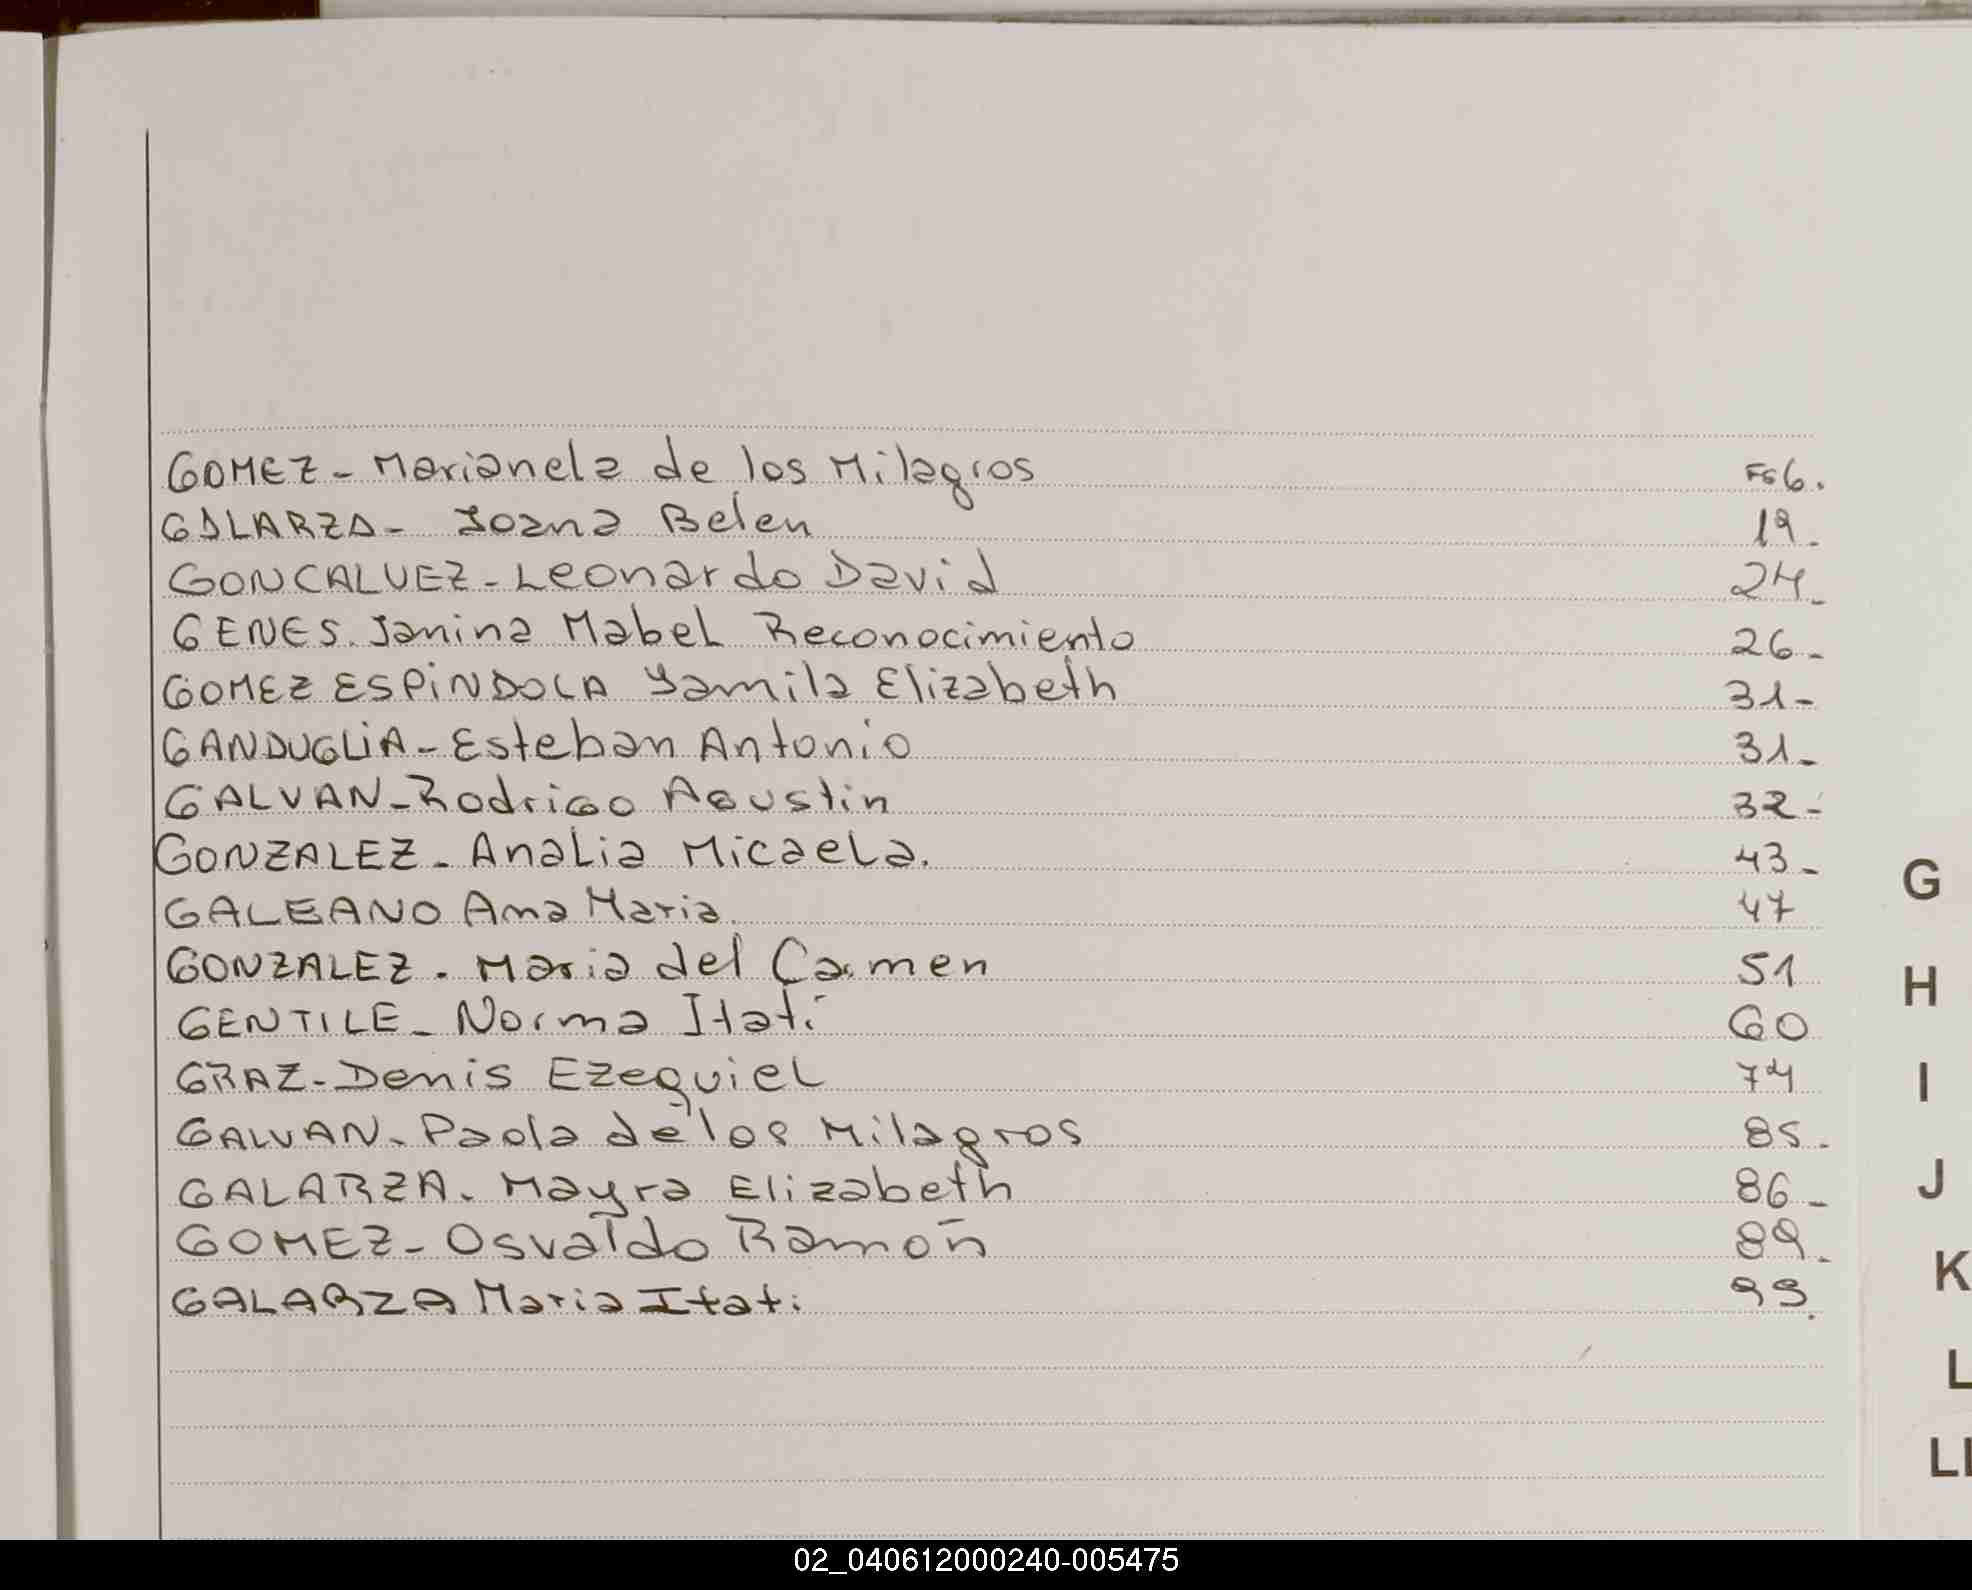 GOMEZ - Marianela de los Milagros Fs 6.
GALARZA - Joana Belen 19.
GONCALVEZ - Leonardo David 24.
GENES. Janina Mabel Reconocimiento 26 -
GOMEZ ESPINDOLA Yamila Elizabeth 31 -
GANDUGLIA - Esteban Antonio 31 -
GALVAN - Rodrigo Agustin 32 -
GONZALEZ - Analia Micaela. 43 -
GALEANO Ana Maria. 47
GONZALEZ. Maria del Carmen 51
GENTILE - Norma Itatí 60
GRAZ - Denis Ezequiel 74
GALVAN. Paola de los Milagros 85.
GALARZA. Mayra Elizabeth 86 -
GOMEZ - Osvaldo Ramón 89.
GALARZA Maria Itati 99.
G
H
I
J
K
L
LL
02_040612000240-005475